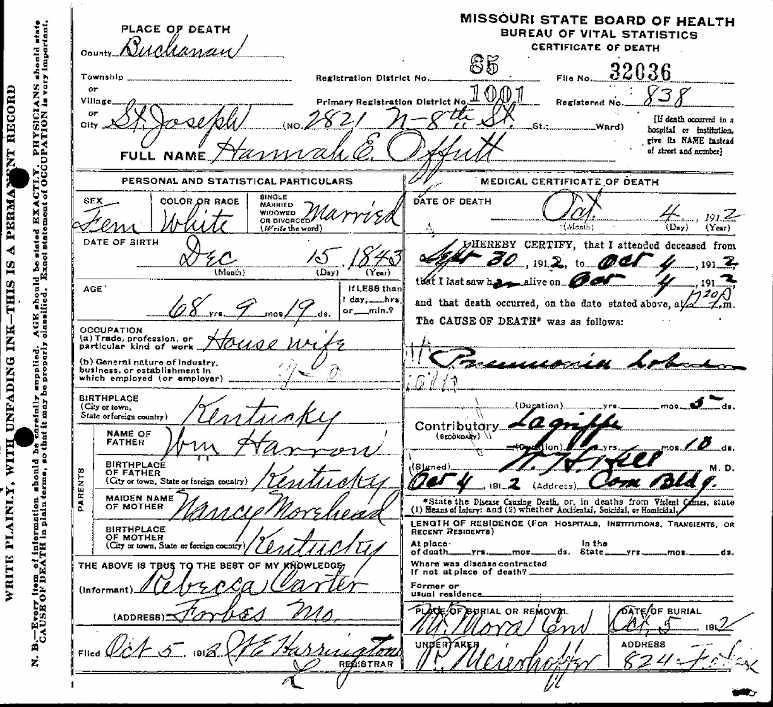 MISSOURI STATE BOARD OF HEALTH
BUREAU OF VITAL STATISTICS
CERTIFICATE OF DEATH
PLACE OF DEATH
County Buchanan
Township
or
Village
or
City St. Joseph (NO. 2821 N-8th St St.; Ward)
Registration District No. 85
File No. 32036
Primary Registration District No. 1001
Registered No. 838
[If death occurred in a
hospital or institution,
give its NAME instead
of street and number]
FULL NAME Hannah E. Offutt
PERSONAL AND STATISTICAL PARTICULARS
SEX
Fem
COLOR OR RACE
White
SINGLE
MARRIED
WIDOWED
OR DIVORCED
(Write the word)
Married
DATE OF BIRTH
Dec 15 1843
(Month) (Day) (Year)
AGE
68 yrs. 9 mos. 19 ds.
If LESS than
1 day, hrs.
or min.?
OCCUPATION
(a) Trade, profession, or
particular kind of work House wife
(b) General nature of industry,
business, or establishment in
which employed (or employer)
BIRTHPLACE
(City or town,
State or foreign country) Kentucky
PARENTS
NAME OF
FATHER Wm Harron
BIRTHPLACE
OF FATHER
(City or town, State or foreign country) Kentucky
MAIDEN NAME
OF MOTHER Nancy Morehead
BIRTHPLACE
OF MOTHER
(City or town, State or foreign country) Kentucky
THE ABOVE IS TRUE TO THE BEST OF MY KNOWLEDGE
(Informant) Rebecca Carter
(ADDRESS) Forbes Mo.
Filed Oct 5 1912 WE Harrington
REGISTRAR
MEDICAL CERTIFICATE OF DEATH
DATE OF DEATH
Oct. 4 1912
(Month) (Day) (Year)
I HEREBY CERTIFY, that I attended deceased from
Sept 30, 1912, to Oct 4, 1912,
that I last saw her alive on Oct 4, 1912
and that death occurred, on the date stated above, at m.
The CAUSE OF DEATH* was as follows:
Pneumonia Lobar
(Duration) yrs. mos. 5 ds.
Contributory Lagrippe
(SECONDARY)
(Duration) yrs. mos. 10 ds.
(Signed) Hill M. D.
Oct 4, 1912 (Address) Com Bldg.
*State the Disease Causing Death, or, in deaths from Violent Causes, state
(1) Means of Injury; and (2) whether Accidental, Suicidal, or Homicidal.
LENGTH OF RESIDENCE (FOR HOSPITALS, INSTITUTIONS, TRANSIENTS, OR
RECENT RESIDENTS)
At place
of death yrs. mos. ds. In the State yrs. mos. ds.
Where was disease contracted
if not at place of death?
Former or
usual residence
PLACE OF BURIAL OR REMOVAL
Mt Mora Cem
DATE OF BURIAL
Oct. 5 1912
UNDERTAKER
Meierhoffer
ADDRESS
824
WRITE PLAINLY, WITH UNFADING INK—THIS IS A PERMANENT RECORD
N. B.—Every item of information should be carefully supplied. AGE should be stated EXACTLY. PHYSICIANS should state
CAUSE OF DEATH in plain terms, so that it may be properly classified. Exact statement of OCCUPATION is very important.